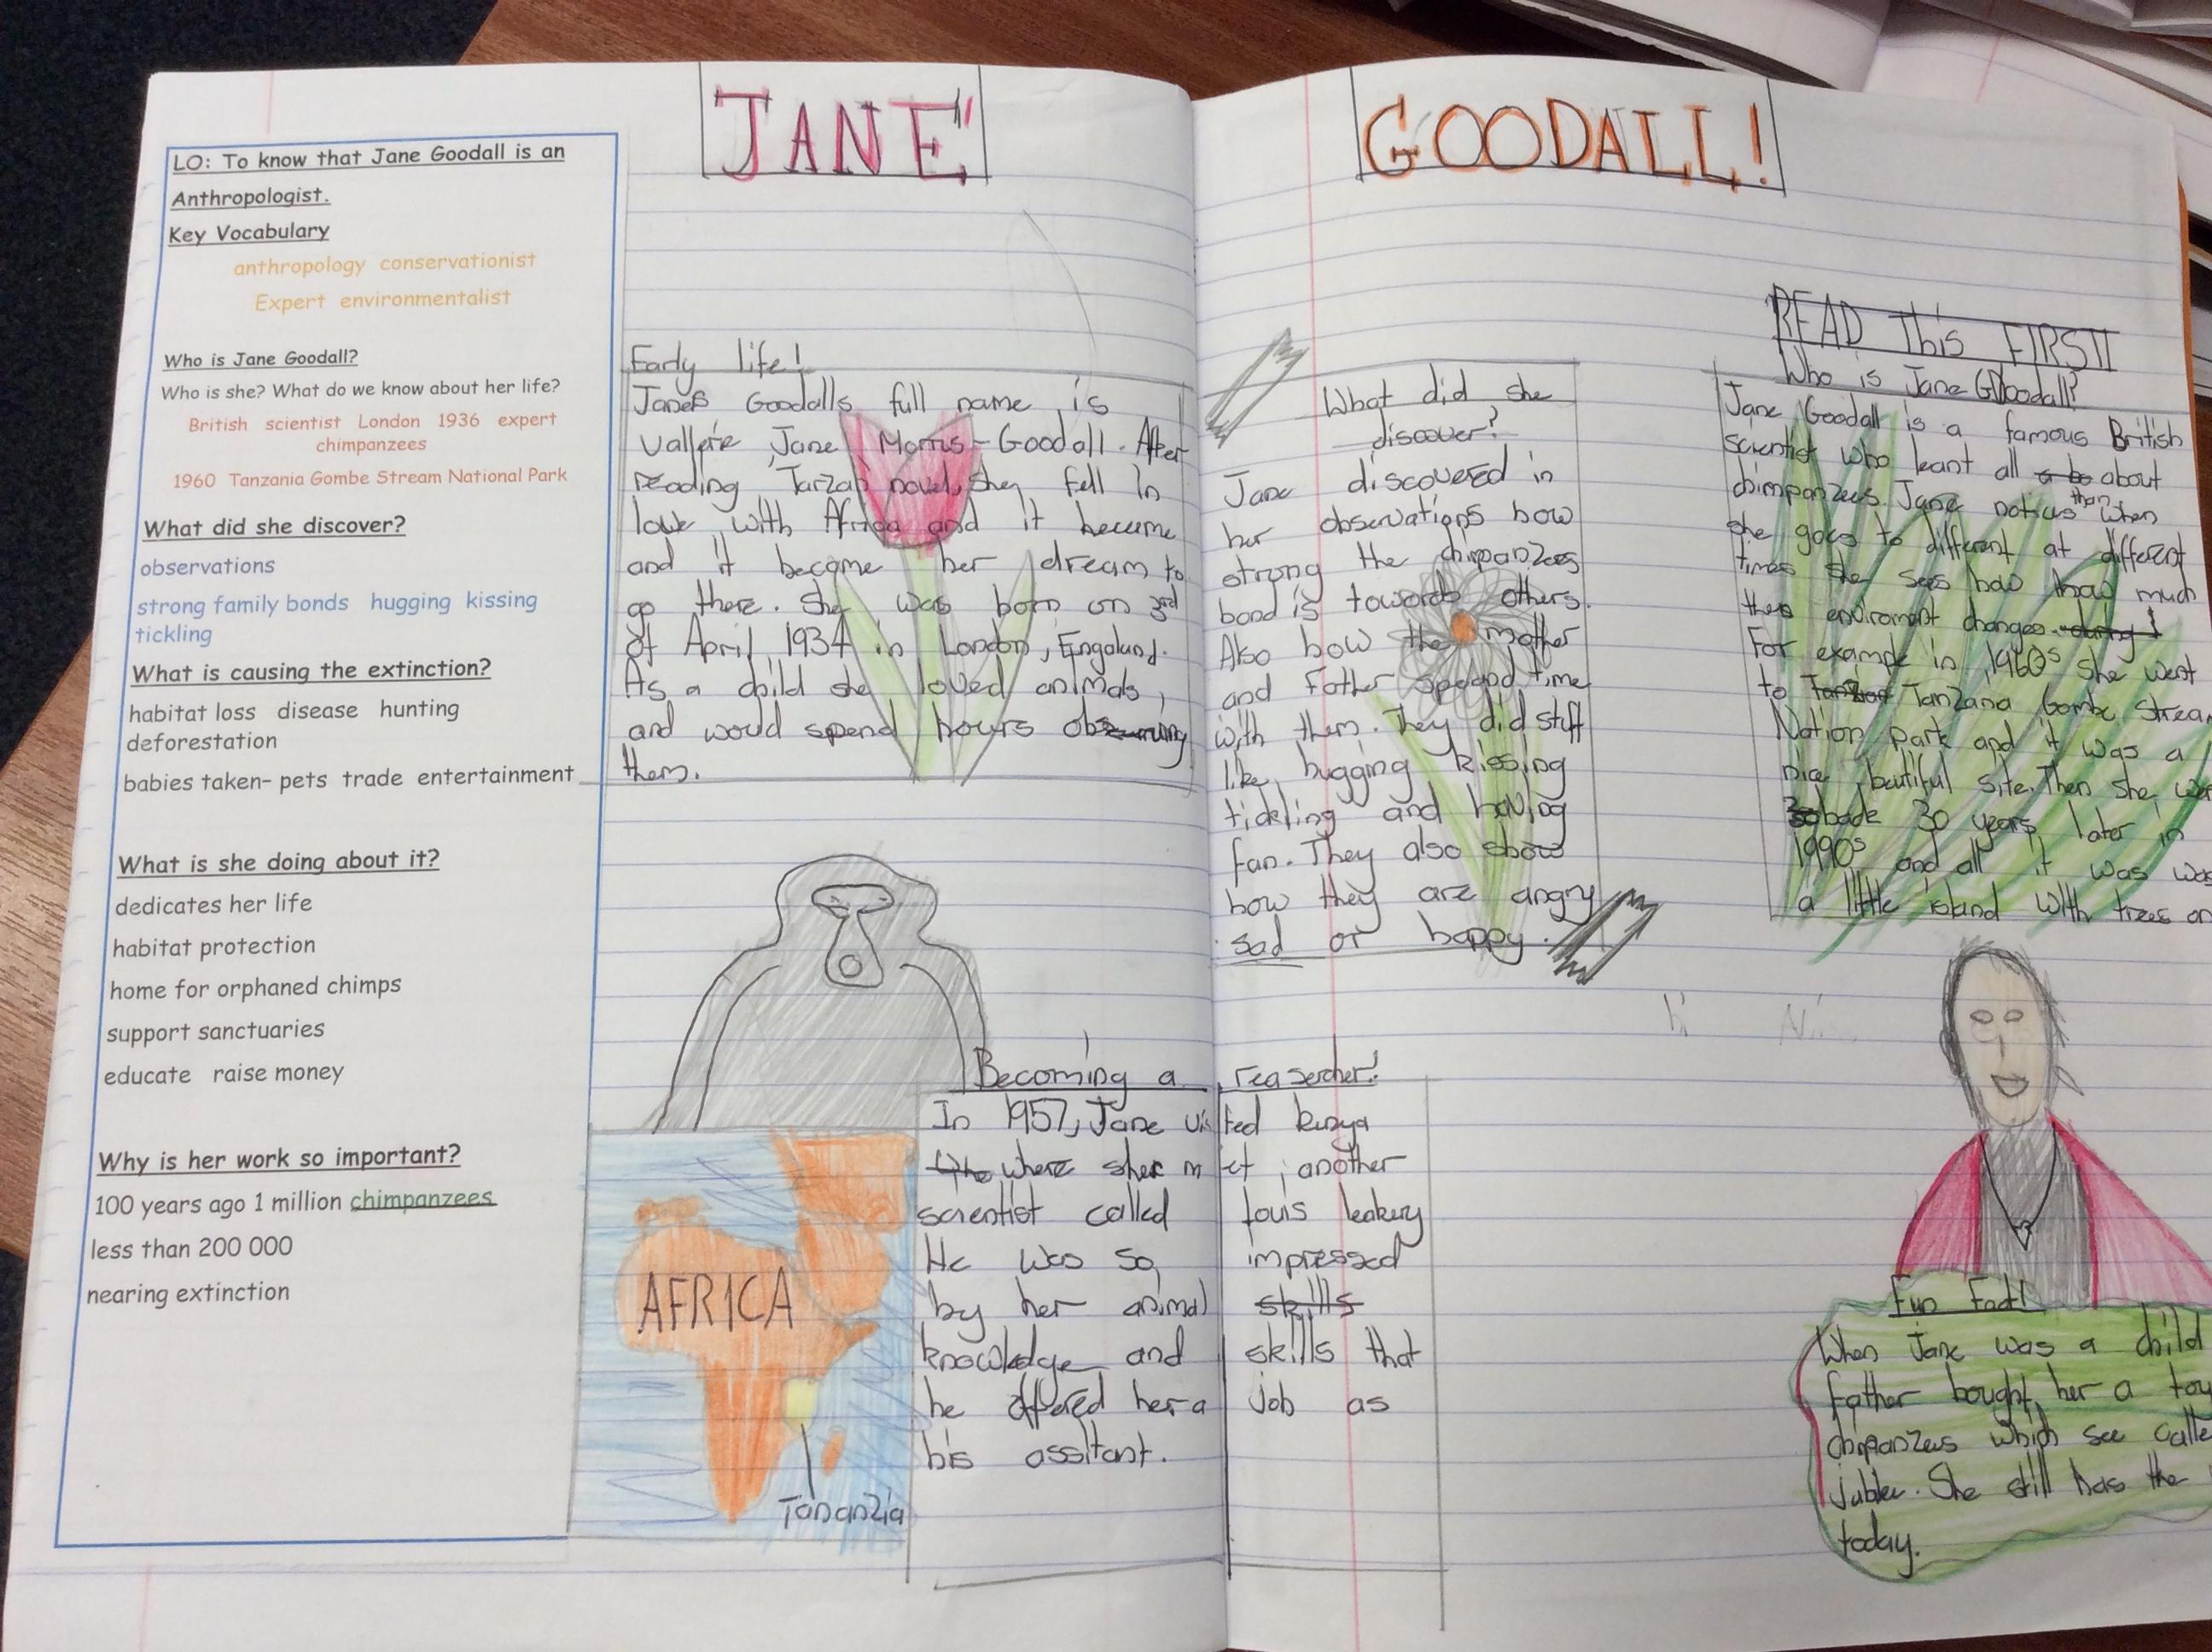 JANE
GOODALL!
LO: To know that Jane Goodall is an
Anthropologist.
Key Vocabulary
anthropology conservationist
Expert environmentalist
Who is Jane Goodall?
Who is she? What do we know about her life?
British scientist London 1936 expert
chimpanzees
1960 Tanzania Gombe Stream National Park
What did she discover?
observations
strong family bonds hugging kissing
tickling
What is causing the extinction?
habitat loss disease hunting
deforestation
babies taken- pets trade entertainment
What is she doing about it?
dedicates her life
habitat protection
home for orphaned chimps
support sanctuaries
educate raise money
Why is her work so important?
100 years ago 1 million chimpanzees
less than 200 000
nearing extinction
Early life!
Janes Goodalls full name is
Jane Morris-Goodall. After
reading Tarzan novel, she fell in
love with Africa and it become
and it became her dream to
go there. She was born on 3rd
of April 1934 in London, Engaland.
As a child she loved animals,
and would spend hours
them.
AFRICA
Tananzia
Becoming a reasercher!
In 1957, Jane visted kenya
where sher met, another
scientist called louis leakery
He was so impressed
by her animal skills
knowledge and skills that
he offered her a job as
his assitant.
What did she
discover?
Jane discovered in
her observations how
strong the chimpanzees
bond is towards others.
Also how the mother
and Father spend time
with them. They did stuff
like hugging kissing
tickling and having
fan. They also show
how they are angry
sad or happy.
READ this FIRST!!
Who is Jane Goodall?
Jane Goodall is a famous British
scientist who leant all a be about
chimpanzees. Jane notius than when
she goes to different at different
times she sees how how much
the enviroment changes during
For example in 1960s she went
to Tanzana Gombe Strea
Nation park and it was a
nice beautiful site. Then she wen
back 30 years later in
1990s and all it was was
a little island with trees on
hi
Fun Fact!
When Jane was a child
Father bought her a toy
which see calle
jublee. She still has the
today.